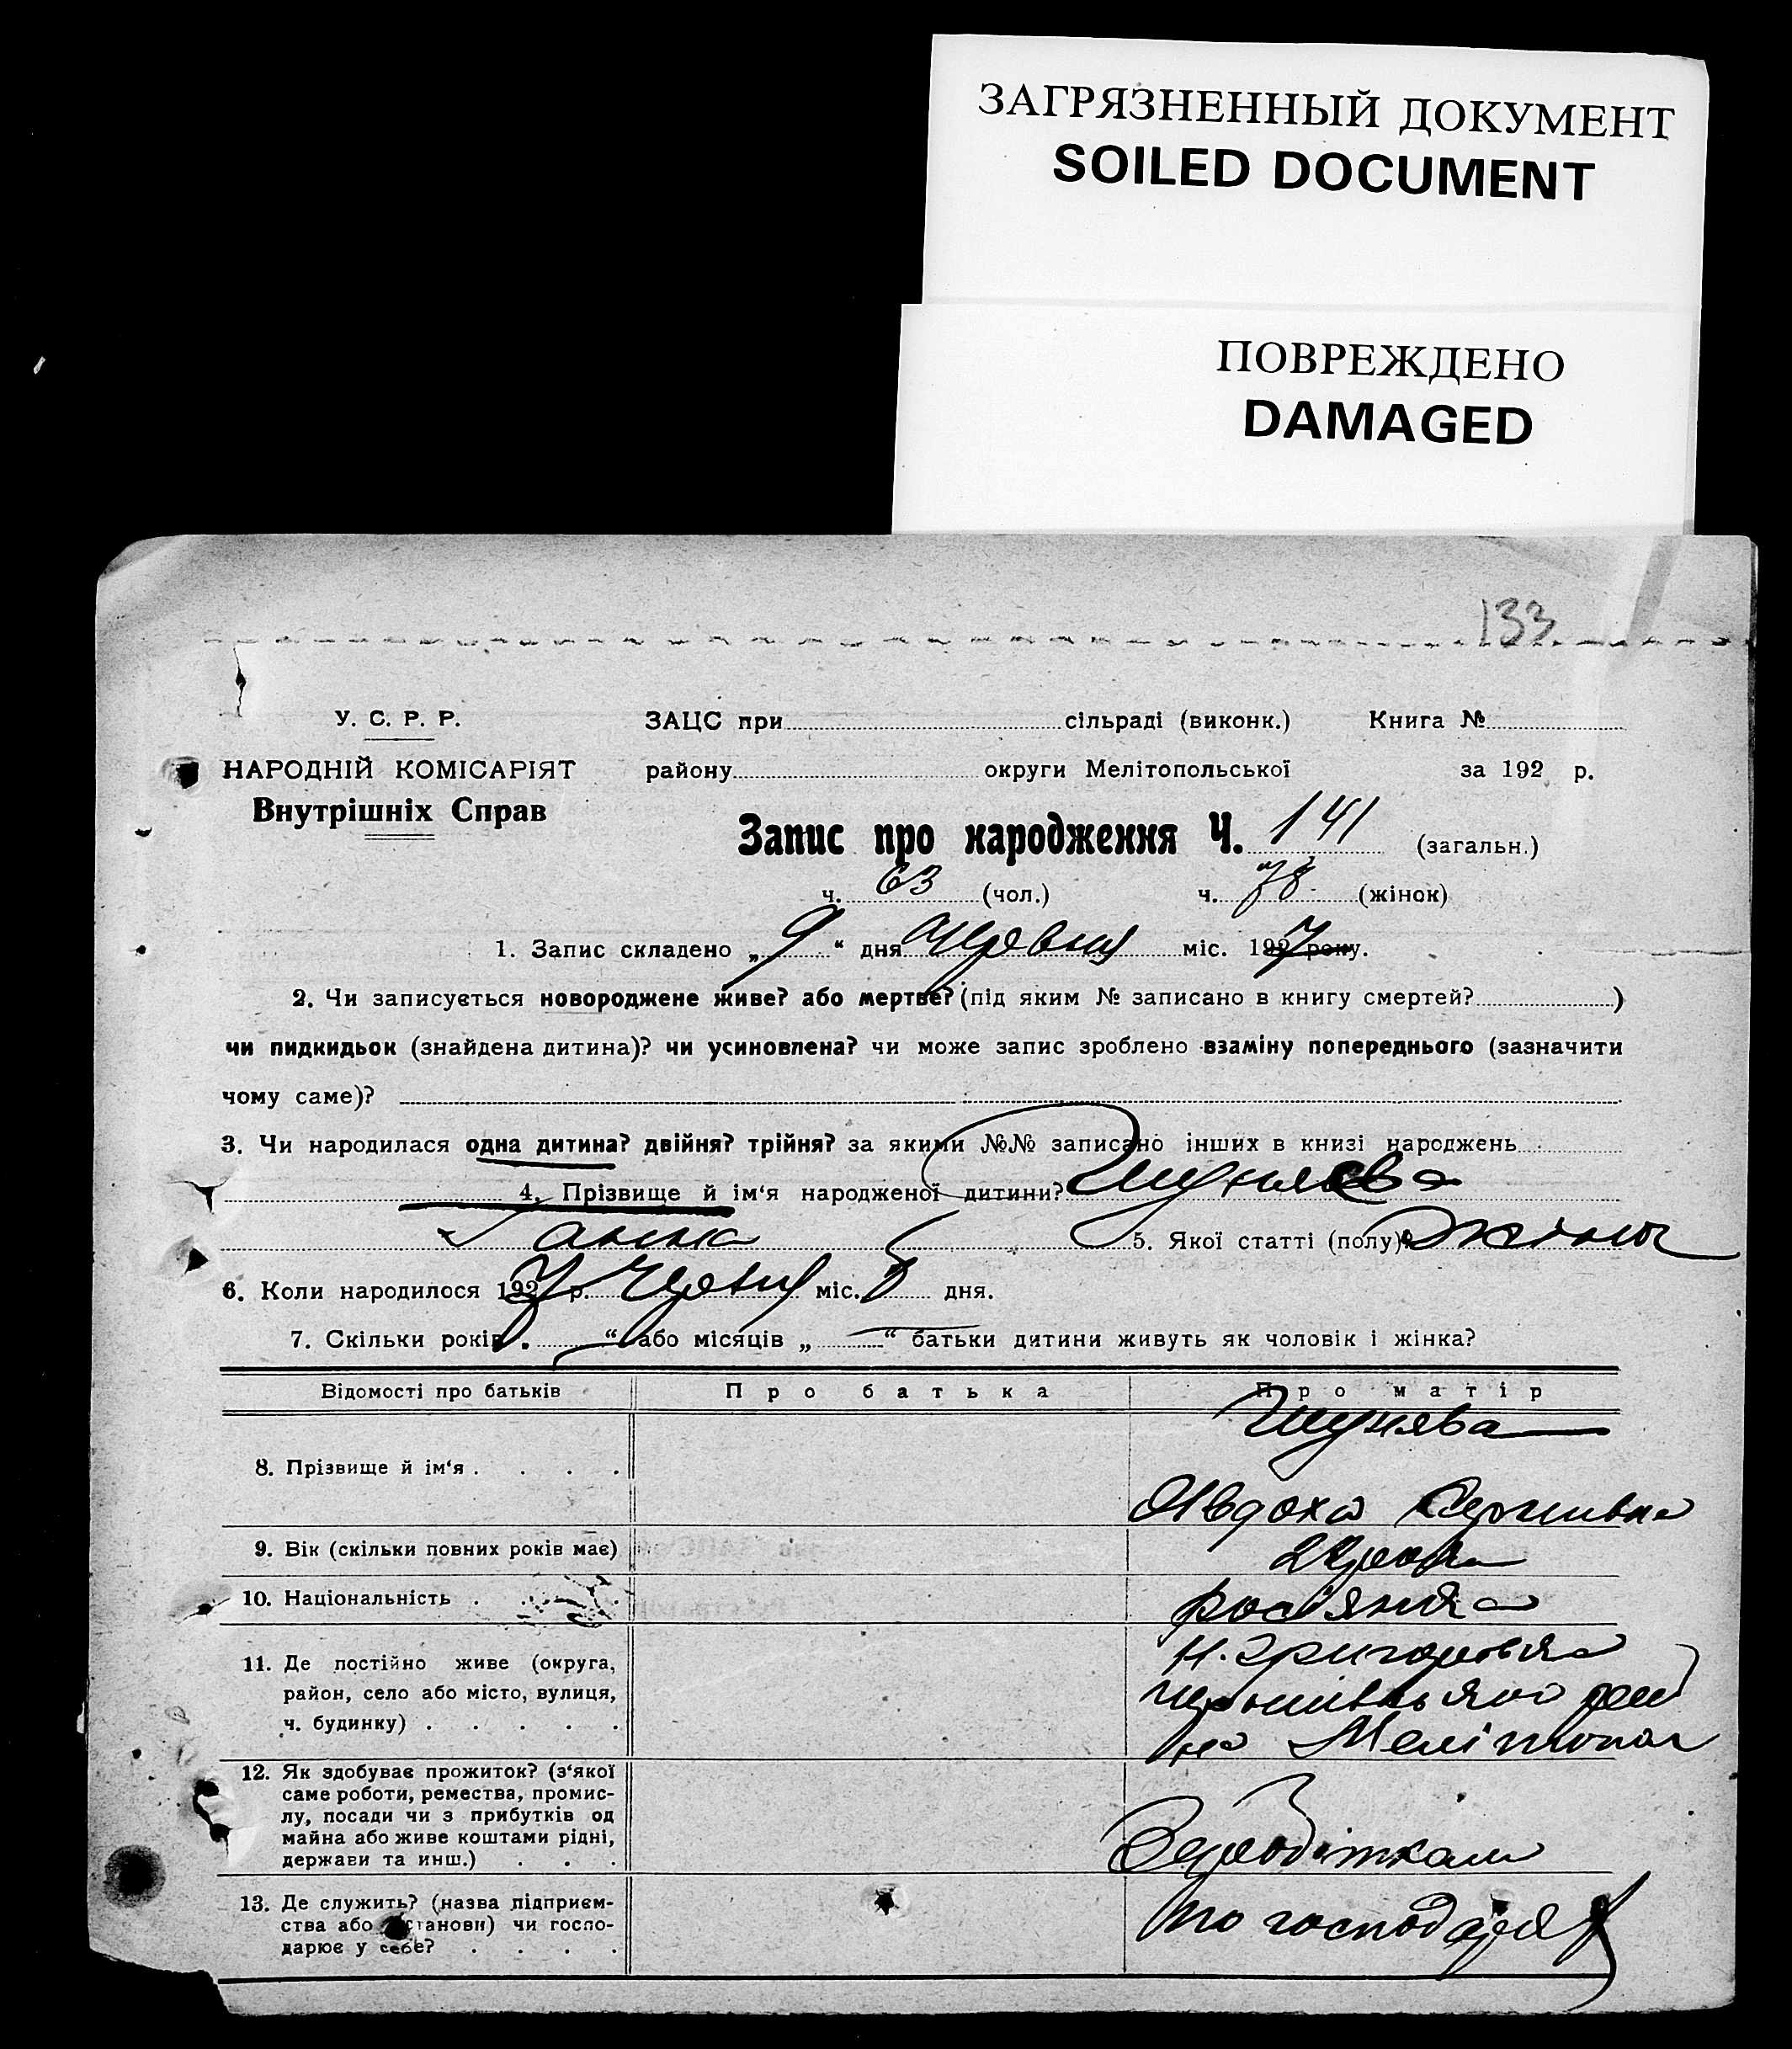 ЗАГРЯЗНЕННЫЙ ДОКУМЕНТ
SOILED DOCUMENT
ПОВРЕЖДЕНО
DAMAGED
133
У. С. Р. Р.
НАРОДНІЙ КОМІСАРІЯТ
Внутрішніх Справ
ЗАЦС при сільраді (виконк.) Книга №
району округи Мелітопольської за 192 р.
Запис про народження Ч. 141 (загальн.)
ч. 63 (чол.) ч. 78 (жінок)
1. Запис складено „9“ дня Червня міс. 1927 року.
2. Чи записується новороджене живе? або мертве? (під яким № записано в книгу смертей? )
чи пидкидьок (знайдена дитина)? чи усиновлена? чи може запис зроблено взаміну попереднього (зазначити
чому саме)?
3. Чи народилася одна дитина? двійня? трійня? за якими №№ записано інших в книзі народжень
4. Прізвище й ім‘я народженої дитини?
Ганна 5. Якої статті (полу)? жіноч
6. Коли народилося 1927 р. Червня міс. дня.
7. Скільки років „ “ або місяців „ “ батьки дитини живуть як чоловік і жінка?
Відомості про батьків Про батька Про матір
8. Прізвище й ім‘я . . . .
Явдоха Сергиівна
9. Вік (скільки повних років має)
10. Національність . . . . росіянка
11. Де постійно живе (округа,
район, село або місто, вулиця,
ч. будинку) . . . . .
Н. Григоровка
на Мелітопол
12. Як здобуває прожиток? (з‘якої
саме роботи, ремества, промис-
лу, посади чи з прибутків од
майна або живе коштами рідні,
держави та инш.) . . .
13. Де служить? (назва підприєм-
ства або установи) чи госпо-
дарює у себе? . . . .
господаря